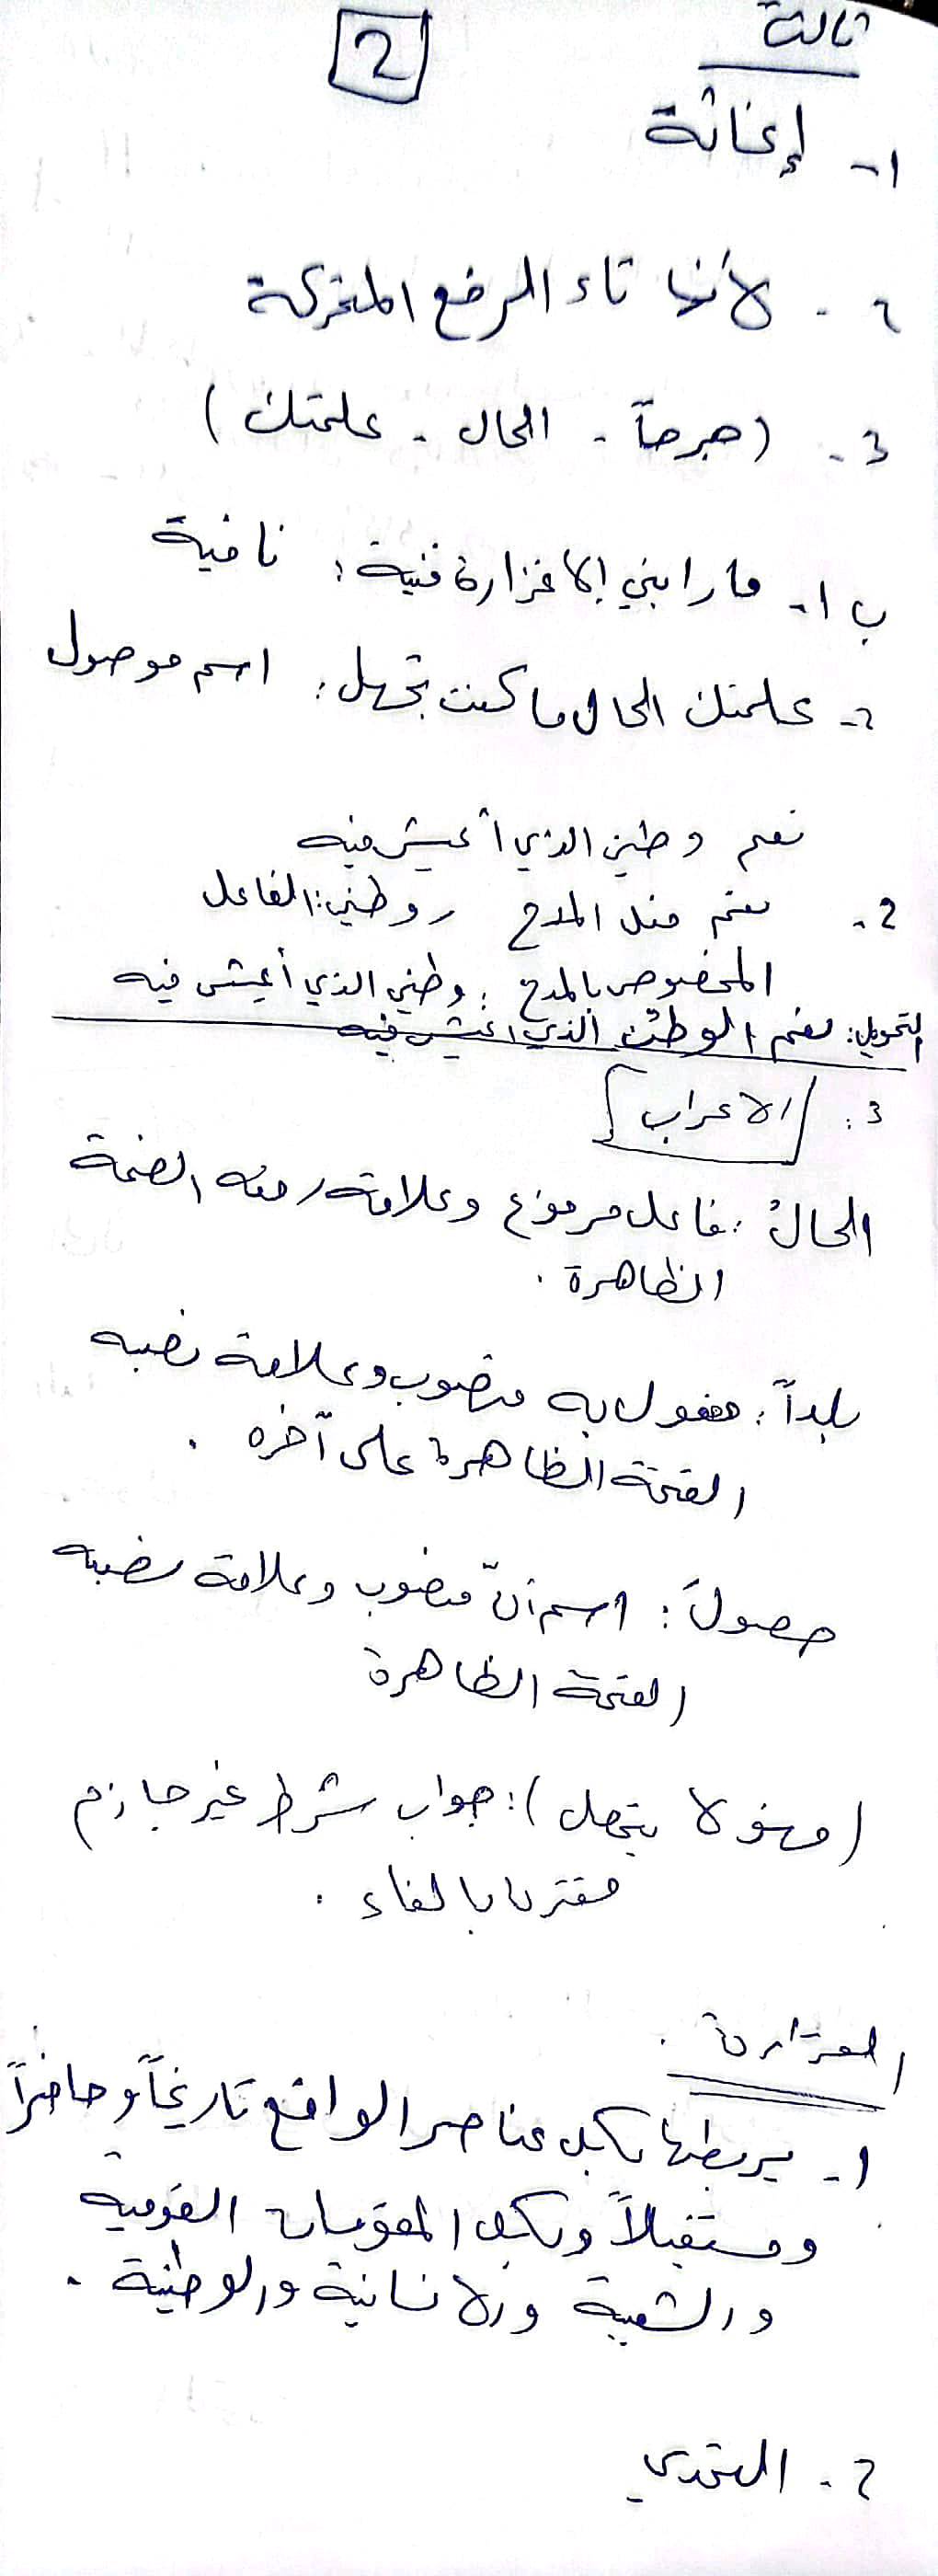 ثالثة
2
١- إغاثة
٢- لأنها تاء الرفع المتحركة
3- (صرحاً - الحال - علمتك)
ب ١- ما رابني إلا غزارة فنية: نافية
٢- علمتك الحال ما كنت تجهل: اسم موصول
نعم وطني الذي أعيش فيه
2- نعم فعل المدح وطني: الفاعل
المخصوص بالمدح: وطني الذي أعيش فيه
التحويل: نعم الوطن الذي أعيش فيه
3: الاعراب
الحالُ: فاعل مرفوع وعلامة رفعه الضمة
الظاهرة.
بلداً: مفعول به منصوب وعلامة نصبه
الفتحة الظاهرة على آخره.
حصولَ: اسم أنّ منصوب وعلامة نصبه
الفتحة الظاهرة
(فهو لا يجهل): جواب شرط غير جازم
مقترنا بالفاء.
القراءة.
١- يربطها بكل عناصر الواقع تاريخاً وحاضراً
ومستقبلاً وبكل المقومات القومية
والشعبية والانسانية والوطنية.
٢- التحدي